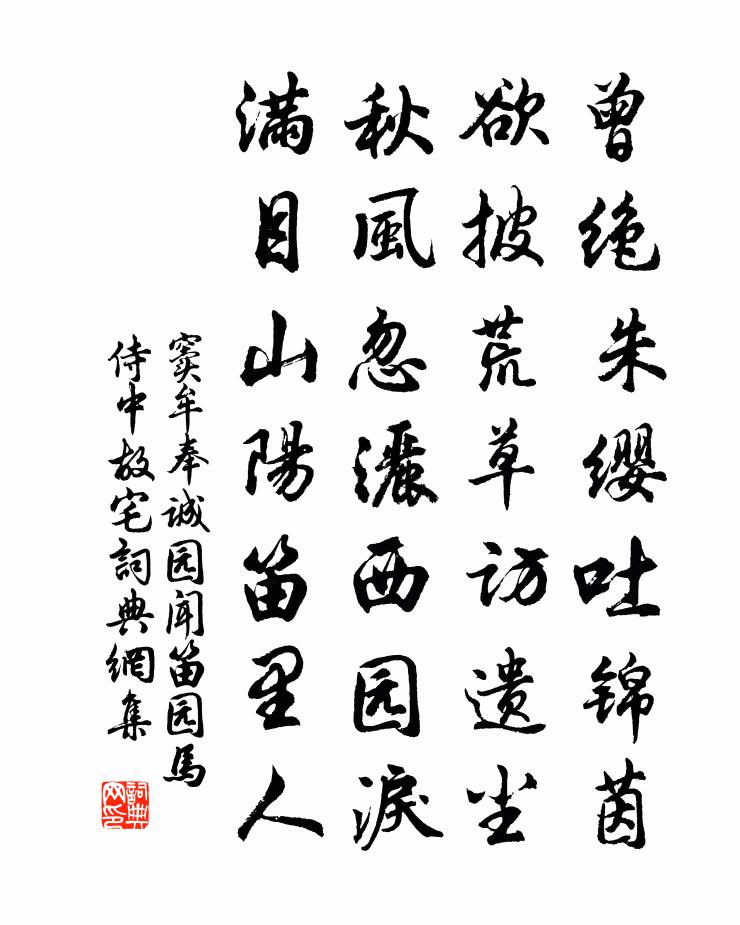 曾绝朱缨吐锦茵
欲披荒草访遗尘
秋風忽灑西园淚
满目山陽笛里人
窦牟奉诚园闻笛园馬
侍中故宅詞典網集
詞典网印